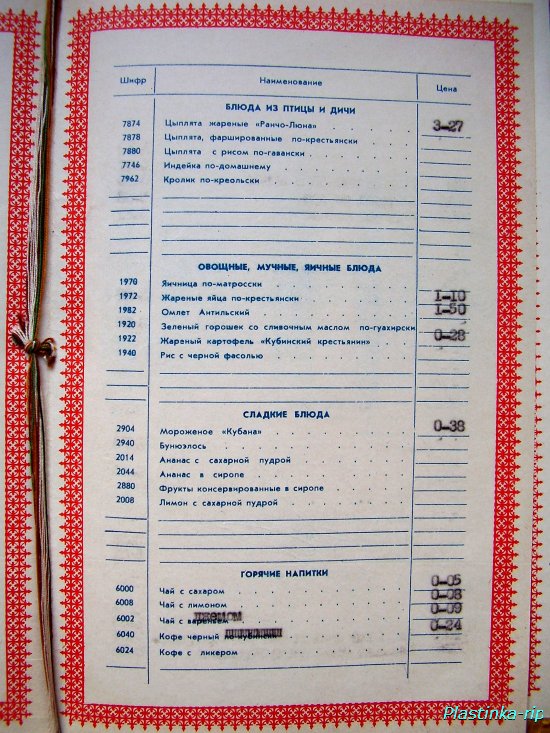 Шифр Наименование Цена
БЛЮДА ИЗ ПТИЦЫ И ДИЧИ
7874 Цыплята жареные «Ранчо-Люна» 3-27
7878 Цыплята, фаршированные по-крестьянски
7880 Цыплята с рисом по-гавански
7746 Индейка по-домашнему
7962 Кролик по-креольски
ОВОЩНЫЕ, МУЧНЫЕ, ЯИЧНЫЕ БЛЮДА
1970 Яичница по-матросски
1972 Жареные яйца по-крестьянски I-I0
1982 Омлет Антильский I-50
1920 Зеленый горошек со сливочным маслом по-гуахирски
1922 Жареный картофель «Кубинский крестьянин» 0-28
1940 Рис с черной фасолью
СЛАДКИЕ БЛЮДА
2904 Мороженое «Кубана» 0-38
2940 Бунюэлось
2014 Ананас с сахарной пудрой
2044 Ананас в сиропе
2880 Фрукты консервированные в сиропе
2008 Лимон с сахарной пудрой
ГОРЯЧИЕ НАПИТКИ
6000 Чай с сахаром 0-05
6008 Чай с лимоном 0-08
6002 Чай с вареньем 0-09
6040 Кофе черный по-кубински 0-24
6024 Кофе с ликером
Plastinka-rip